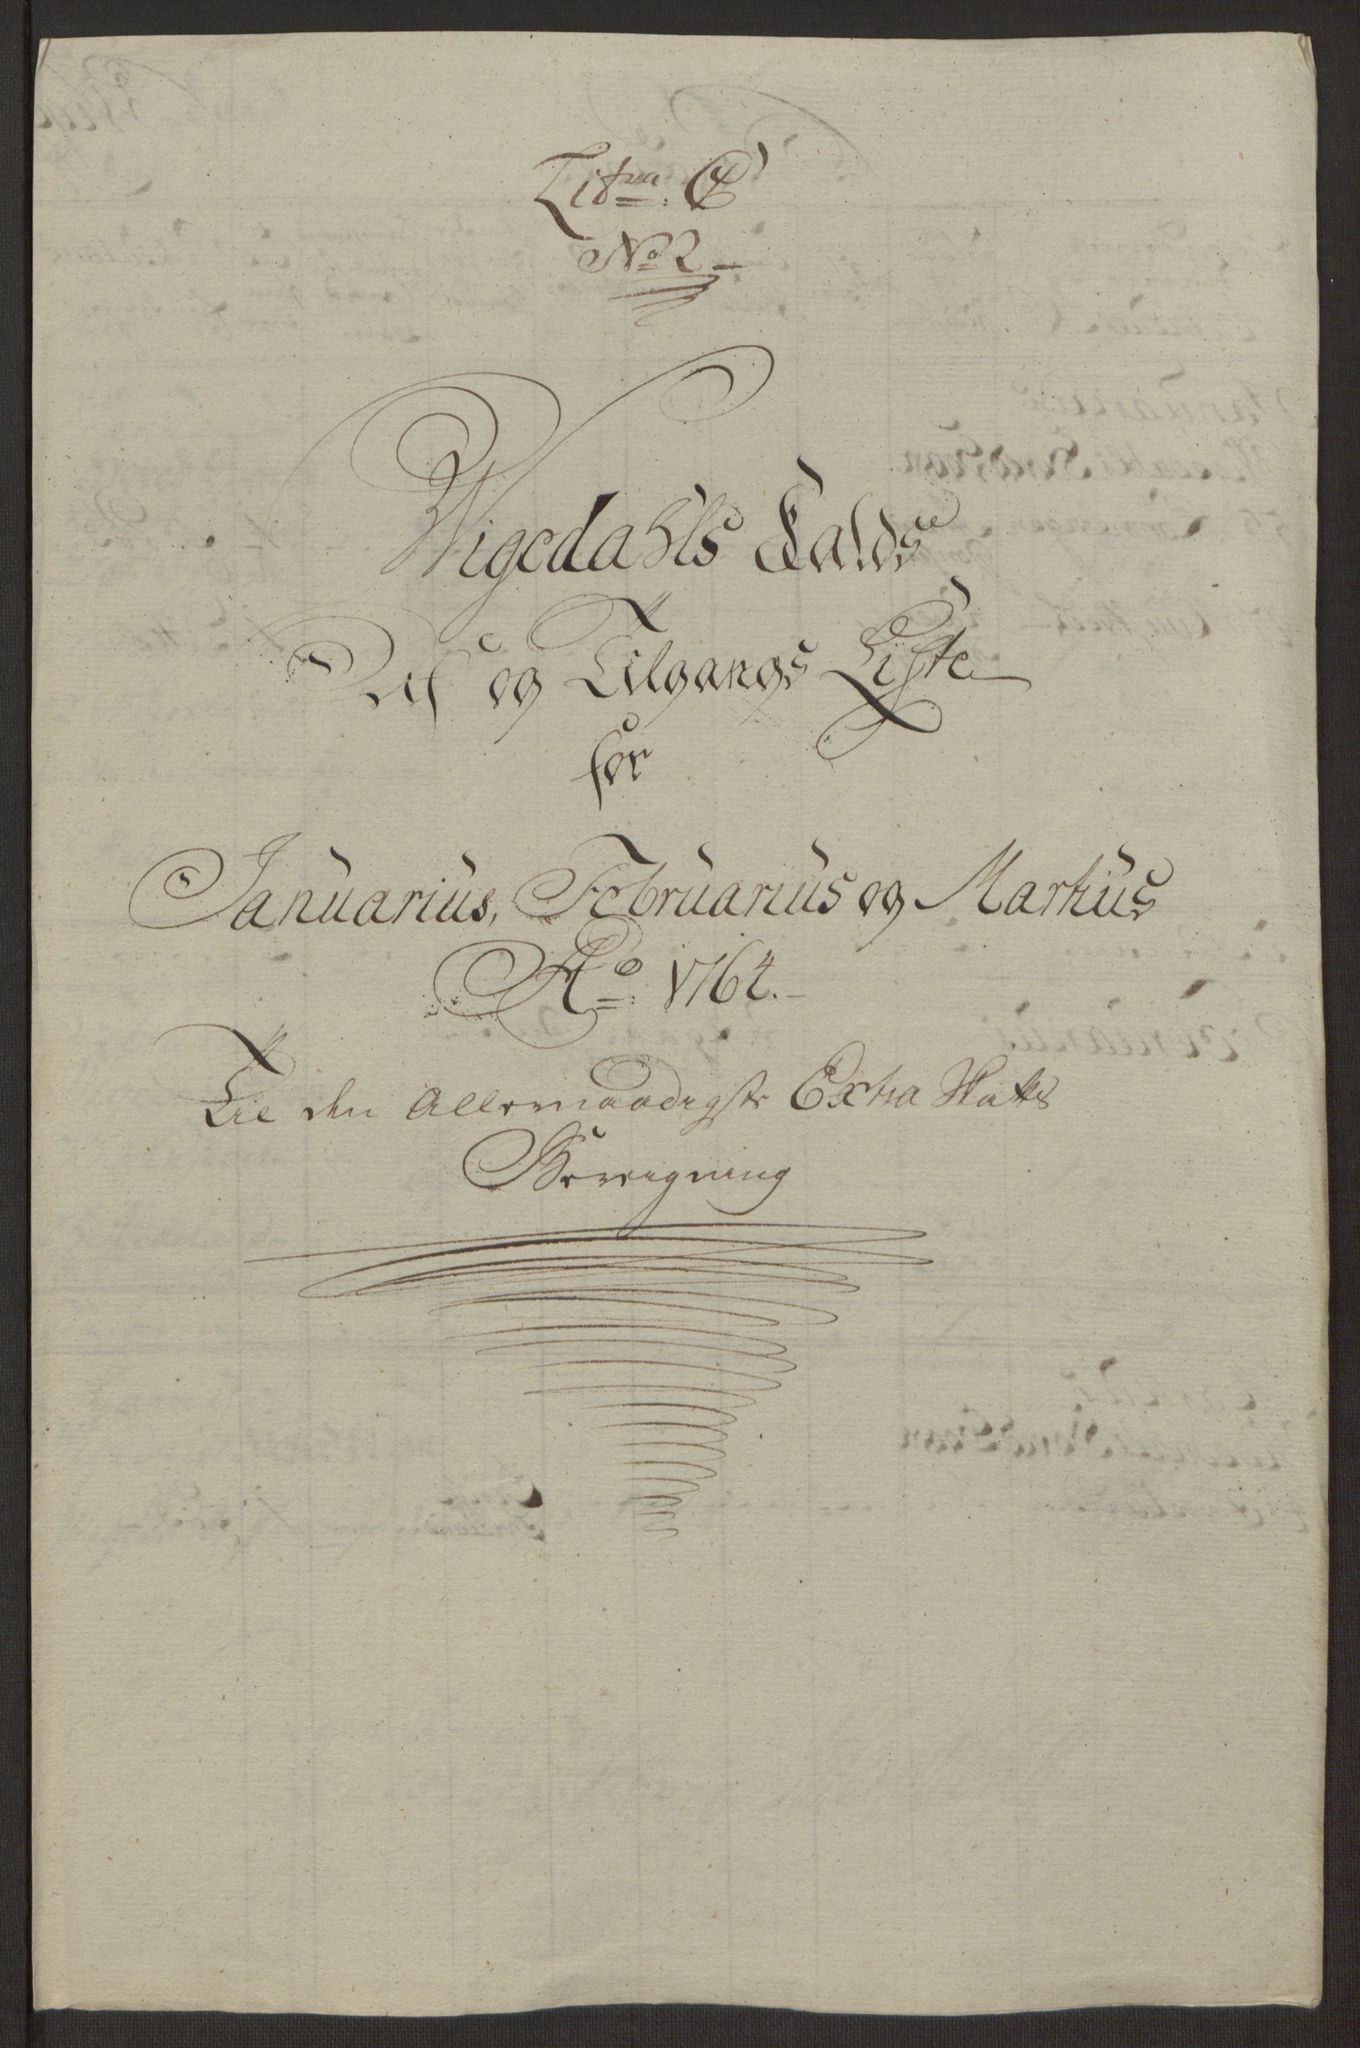 Litra: C
No 2
Wigedahls Kalds
Af og Tilgangs Liste
for
Januarius, Februarius og Martius
Ao: 1764.
Til den Allernaadigste Extra Skatts
Bereigning